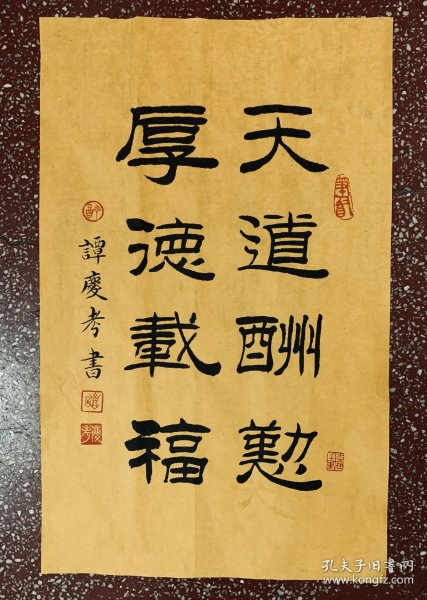 天道酬勤
厚德載福
譚慶考書
孔夫子旧书网
www.kongfz.com